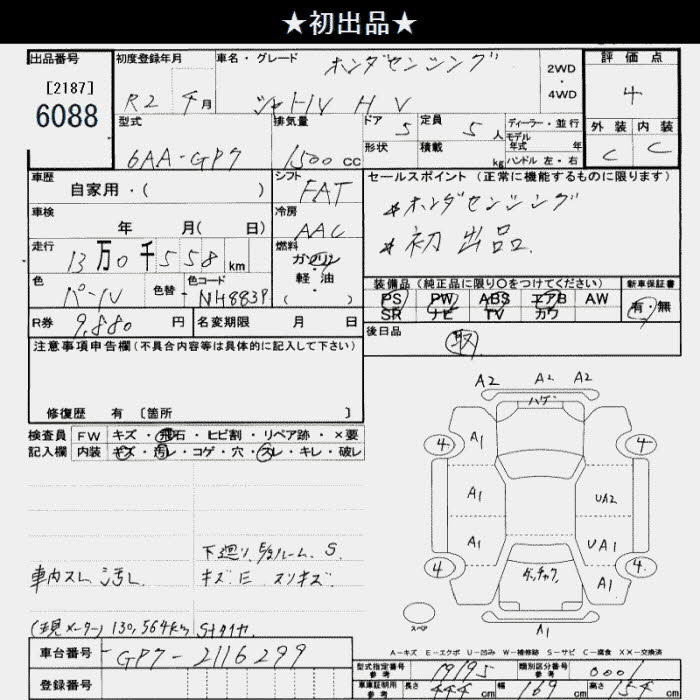 ★初出品★
出品番号
[2187]
6088
初度登録年月
R2 年 月
車名・グレード
ホンダセンシング
シャトル H V
2WD
・
4WD
評価点
4
外装 内装
C C
型式
6AA-GP7
排気量
1500 cc
ドア 5
定員 5 人
形状
積載 kg
ディーラー・並行
モデル
年式 年
ハンドル 左・右
車歴
自家用・( )
シフト
FAT
セールスポイント (正常に機能するものに限ります)
*ホンダセンシング
*初出品
車検
年 月( 日)
冷房
AAC
走行
13万0千558km
燃料
ガソリン
軽・油
・
( )
色
パール
色替
色コード
NH883P
装備品(純正品に限り○をつけてください)
PS PW ABS エアB AW
SR ナビ TV カワ
新車保証書
有・無
R券 9,880 円
名変期限 月 日
後日品
取
注意事項申告欄(不具合内容等は具体的に記入して下さい)
修復歴 有 〔箇所 〕
検査員
記入欄
FW キズ・飛石・ヒビ割・リペア跡・×要
内装 キズ・汚レ・コゲ・穴・スレ・キレ・破レ
車内スレ 汚レ
下廻り E/gルーム S
キズE スリキズ
(現メーター) 130,564km Sタイヤ
A2 A2 A2
ハゲ
4 A1 4
A1 UA2
A1 UA1
4 A1 4
A1
スペア
A-キズ E-エクボ U-凹み W-補修跡 S-サビ C-腐食 XX-交換済
車台番号
GP7-2116299
登録番号
型式指定番号
参考
19195
類別区分番号
参考
0001
車庫証明用
参考
長さ 444 cm 幅 169 cm 高さ 154 cm